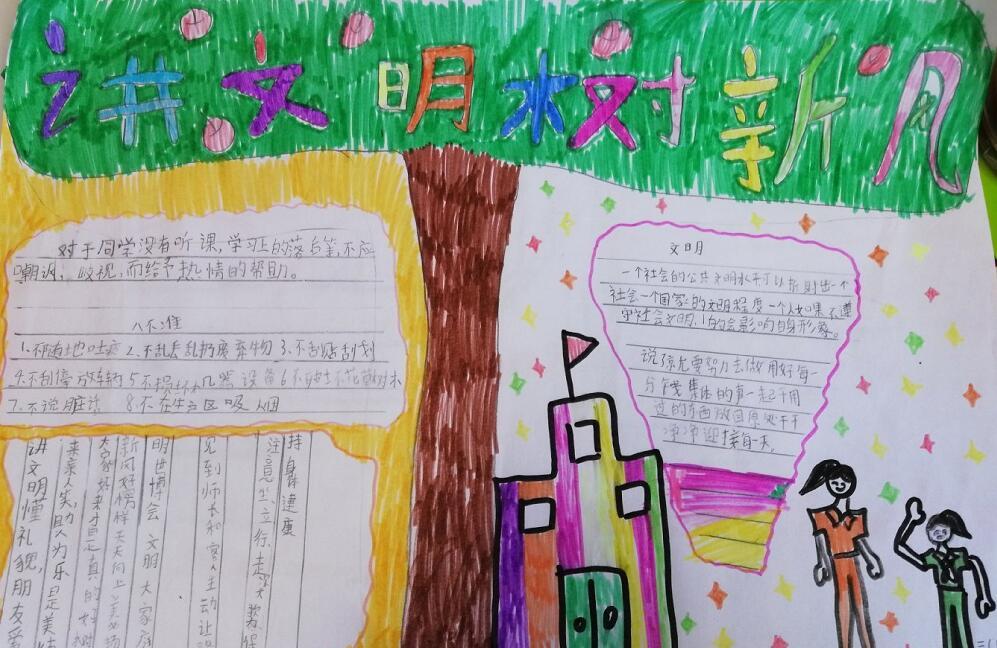 讲文明树新风
对于同学没有听课,学习上的落后等,不应
嘲讽,歧视,而给予热情的帮助。
八不准
1.不随地吐痰 2.不乱丢乱扔废弃物 3.不乱贴刮划
4.不乱停放车辆 5不损坏机器设备6不
7.不说脏话 8.不在生产区吸烟
讲文明懂礼貌,朋友爱
来亲人笑,助人为乐是美
大家好才是真的好树
新风好榜样天天向上美名扬
明世博会 文明大家庭
见到师长和客人主动让
注意坐立行走
持身速度
文明
一个社会的公共文明水平可以折射出一个
社会一个国家的文明程度一个人如果不遵
守社会文明,的会影响自身形象。
要努力去做用好每一
分钱集体的事一起干用
过的东西放回原处干干
净净迎接每天。